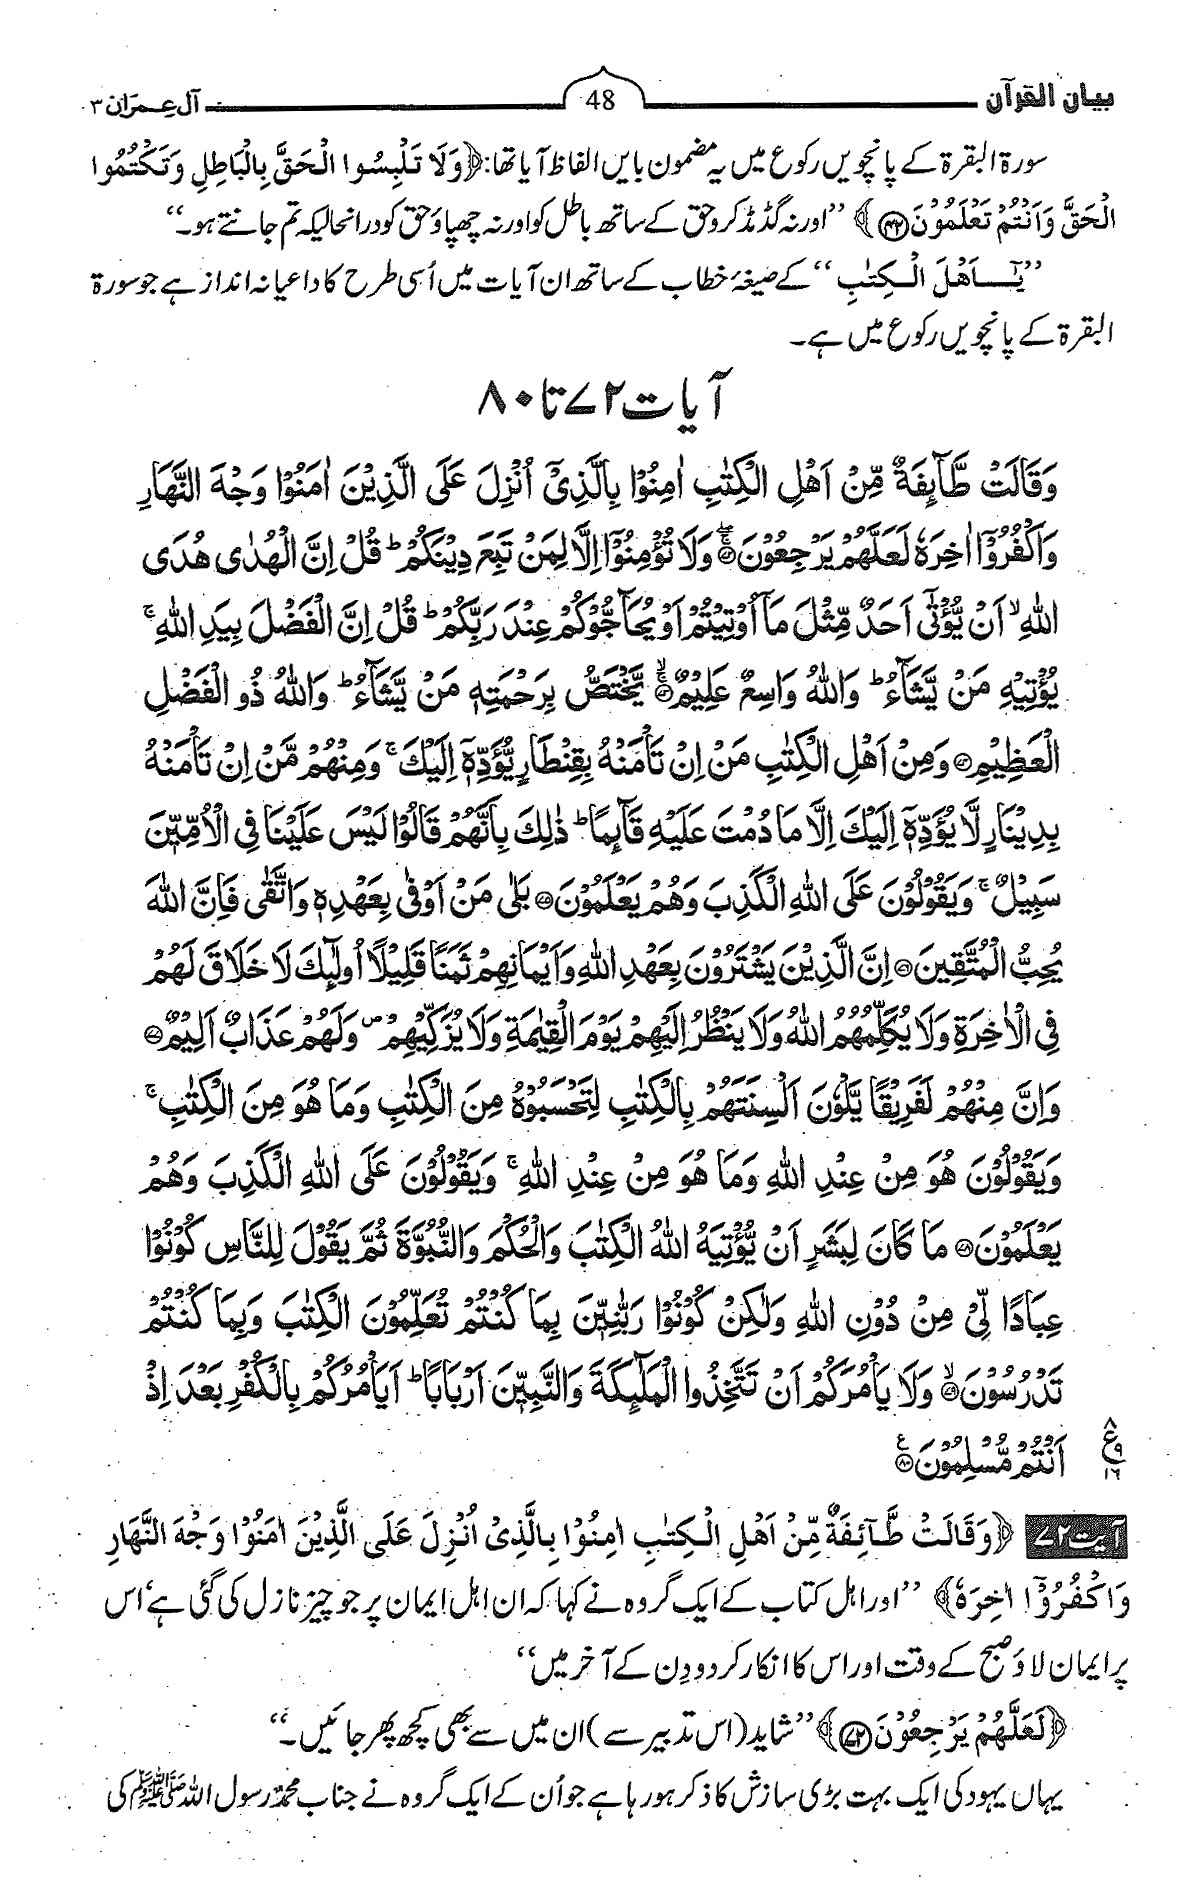 بیان القرآن 48 آل عمران ۳
سورۃ البقرۃ کے پانچویں رکوع میں یہ مضمون بایں الفاظ آیا تھا: ﴿وَلَا تَلْبِسُوا الْحَقَّ بِالْبَاطِلِ وَتَكْتُمُوا
الْحَقَّ وَاَنْتُمْ تَعْلَمُوْنَ ۝۴۲﴾ ’’اور نہ گڈمڈ کرو حق کے ساتھ باطل کو اور نہ چھپاؤ حق کو درانحالیکہ تم جانتے ہو۔‘‘
’’يٰٓاَهْلَ الْكِتٰبِ‘‘ کے صیغۂ خطاب کے ساتھ ان آیات میں اُسی طرح کا داعیانہ انداز ہے جو سورۃ
البقرۃ کے پانچویں رکوع میں ہے۔
آیات ۷۲ تا ۸۰
وَقَالَتْ طَّآئِفَةٌ مِّنْ اَهْلِ الْكِتٰبِ اٰمِنُوْا بِالَّذِيْٓ اُنْزِلَ عَلَى الَّذِيْنَ اٰمَنُوْا وَجْهَ النَّهَارِ
وَاكْفُرُوْٓا اٰخِرَهٗ لَعَلَّهُمْ يَرْجِعُوْنَ ۝۷۲ وَلَا تُؤْمِنُوْٓا اِلَّا لِمَنْ تَبِعَ دِيْنَكُمْ ؕ قُلْ اِنَّ الْهُدٰى هُدَى
اللّٰهِ ۙ اَنْ يُّؤْتٰٓى اَحَدٌ مِّثْلَ مَآ اُوْتِيْتُمْ اَوْ يُحَآجُّوْكُمْ عِنْدَ رَبِّكُمْ ؕ قُلْ اِنَّ الْفَضْلَ بِيَدِ اللّٰهِ ۚ
يُؤْتِيْهِ مَنْ يَّشَآءُ ؕ وَاللّٰهُ وَاسِعٌ عَلِيْمٌ ۝۷۳ ۙ يَّخْتَصُّ بِرَحْمَتِهٖ مَنْ يَّشَآءُ ؕ وَاللّٰهُ ذُو الْفَضْلِ
الْعَظِيْمِ ۝۷۴ وَمِنْ اَهْلِ الْكِتٰبِ مَنْ اِنْ تَاْمَنْهُ بِقِنْطَارٍ يُّؤَدِّهٖٓ اِلَيْكَ ۚ وَمِنْهُمْ مَّنْ اِنْ تَاْمَنْهُ
بِدِيْنَارٍ لَّا يُؤَدِّهٖٓ اِلَيْكَ اِلَّا مَا دُمْتَ عَلَيْهِ قَآئِمًا ؕ ذٰلِكَ بِاَنَّهُمْ قَالُوْا لَيْسَ عَلَيْنَا فِي الْاُمِّيّٖنَ
سَبِيْلٌ ۚ وَيَقُوْلُوْنَ عَلَى اللّٰهِ الْكَذِبَ وَهُمْ يَعْلَمُوْنَ ۝۷۵ بَلٰى مَنْ اَوْفٰى بِعَهْدِهٖ وَاتَّقٰى فَاِنَّ اللّٰهَ
يُحِبُّ الْمُتَّقِيْنَ ۝۷۶ اِنَّ الَّذِيْنَ يَشْتَرُوْنَ بِعَهْدِ اللّٰهِ وَاَيْمَانِهِمْ ثَمَنًا قَلِيْلًا اُولٰٓئِكَ لَا خَلَاقَ لَهُمْ
فِي الْاٰخِرَةِ وَلَا يُكَلِّمُهُمُ اللّٰهُ وَلَا يَنْظُرُ اِلَيْهِمْ يَوْمَ الْقِيٰمَةِ وَلَا يُزَكِّيْهِمْ ۠ وَلَهُمْ عَذَابٌ اَلِيْمٌ ۝۷۷
وَاِنَّ مِنْهُمْ لَفَرِيْقًا يَّلْوٗنَ اَلْسِنَتَهُمْ بِالْكِتٰبِ لِتَحْسَبُوْهُ مِنَ الْكِتٰبِ وَمَا هُوَ مِنَ الْكِتٰبِ ۚ
وَيَقُوْلُوْنَ هُوَ مِنْ عِنْدِ اللّٰهِ وَمَا هُوَ مِنْ عِنْدِ اللّٰهِ ۚ وَيَقُوْلُوْنَ عَلَى اللّٰهِ الْكَذِبَ وَهُمْ
يَعْلَمُوْنَ ۝۷۸ مَا كَانَ لِبَشَرٍ اَنْ يُّؤْتِيَهُ اللّٰهُ الْكِتٰبَ وَالْحُكْمَ وَالنُّبُوَّةَ ثُمَّ يَقُوْلَ لِلنَّاسِ كُوْنُوْا
عِبَادًا لِّيْ مِنْ دُوْنِ اللّٰهِ وَلٰكِنْ كُوْنُوْا رَبّٰنِيّٖنَ بِمَا كُنْتُمْ تُعَلِّمُوْنَ الْكِتٰبَ وَبِمَا كُنْتُمْ
تَدْرُسُوْنَ ۝۷۹ ۙ وَلَا يَاْمُرَكُمْ اَنْ تَتَّخِذُوا الْمَلٰٓئِكَةَ وَالنَّبِيّٖنَ اَرْبَابًا ؕ اَيَاْمُرُكُمْ بِالْكُفْرِ بَعْدَ اِذْ
اَنْتُمْ مُّسْلِمُوْنَ ۝۸۰ ۧ ۸ ع ۹ ۱۶
آیت ۷۲ ﴿وَقَالَتْ طَّآئِفَةٌ مِّنْ اَهْلِ الْكِتٰبِ اٰمِنُوْا بِالَّذِيْ اُنْزِلَ عَلَى الَّذِيْنَ اٰمَنُوْا وَجْهَ النَّهَارِ
وَاكْفُرُوْٓا اٰخِرَهٗ﴾ ’’اور اہل کتاب کے ایک گروہ نے کہا کہ ان اہل ایمان پر جو چیز نازل کی گئی ہے‘ اس
پر ایمان لاؤ صبح کے وقت اور اس کا انکار کر دو دِن کے آخر میں‘‘
﴿لَعَلَّهُمْ يَرْجِعُوْنَ ۝۷۲﴾ ’’شاید (اس تدبیر سے) ان میں سے بھی کچھ پھر جائیں۔‘‘
یہاں یہود کی ایک بہت بڑی سازش کا ذکر ہو رہا ہے جو اُن کے ایک گروہ نے جناب محمدٌ رسول اللہ ﷺ کی